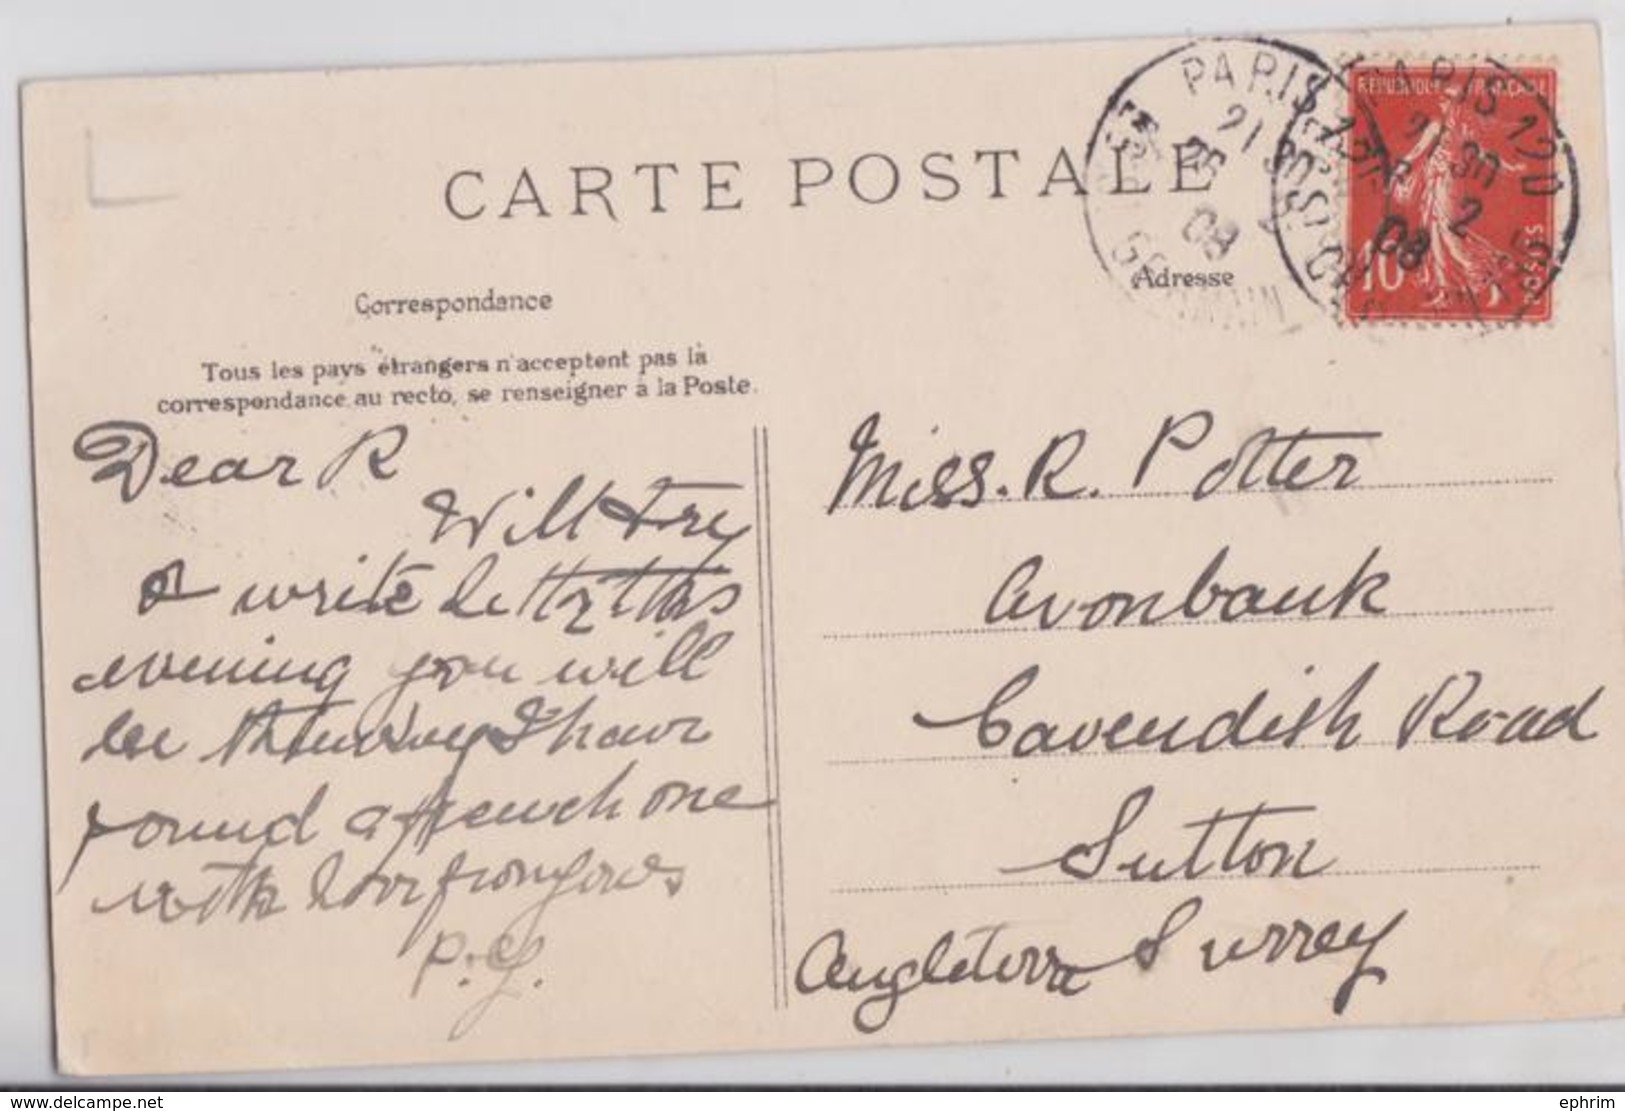 CARTE POSTALE
Correspondance
Adresse
Tous les pays étrangers n'acceptent pas la
correspondance au recto, se renseigner à la Poste.
PARIS
21 30
08
PARIS
21 30
2
08
REPUBLIQUE FRANÇAISE
10
POSTES
Dear R
Will try
& write letter this
evening you will
be thinking I have
found a french one
with love from yours
P.G.
Miss. R. Potter
Avonbank
Cavendish Road
Sutton
Angleterre Surrey
delcampe.net
ephrim